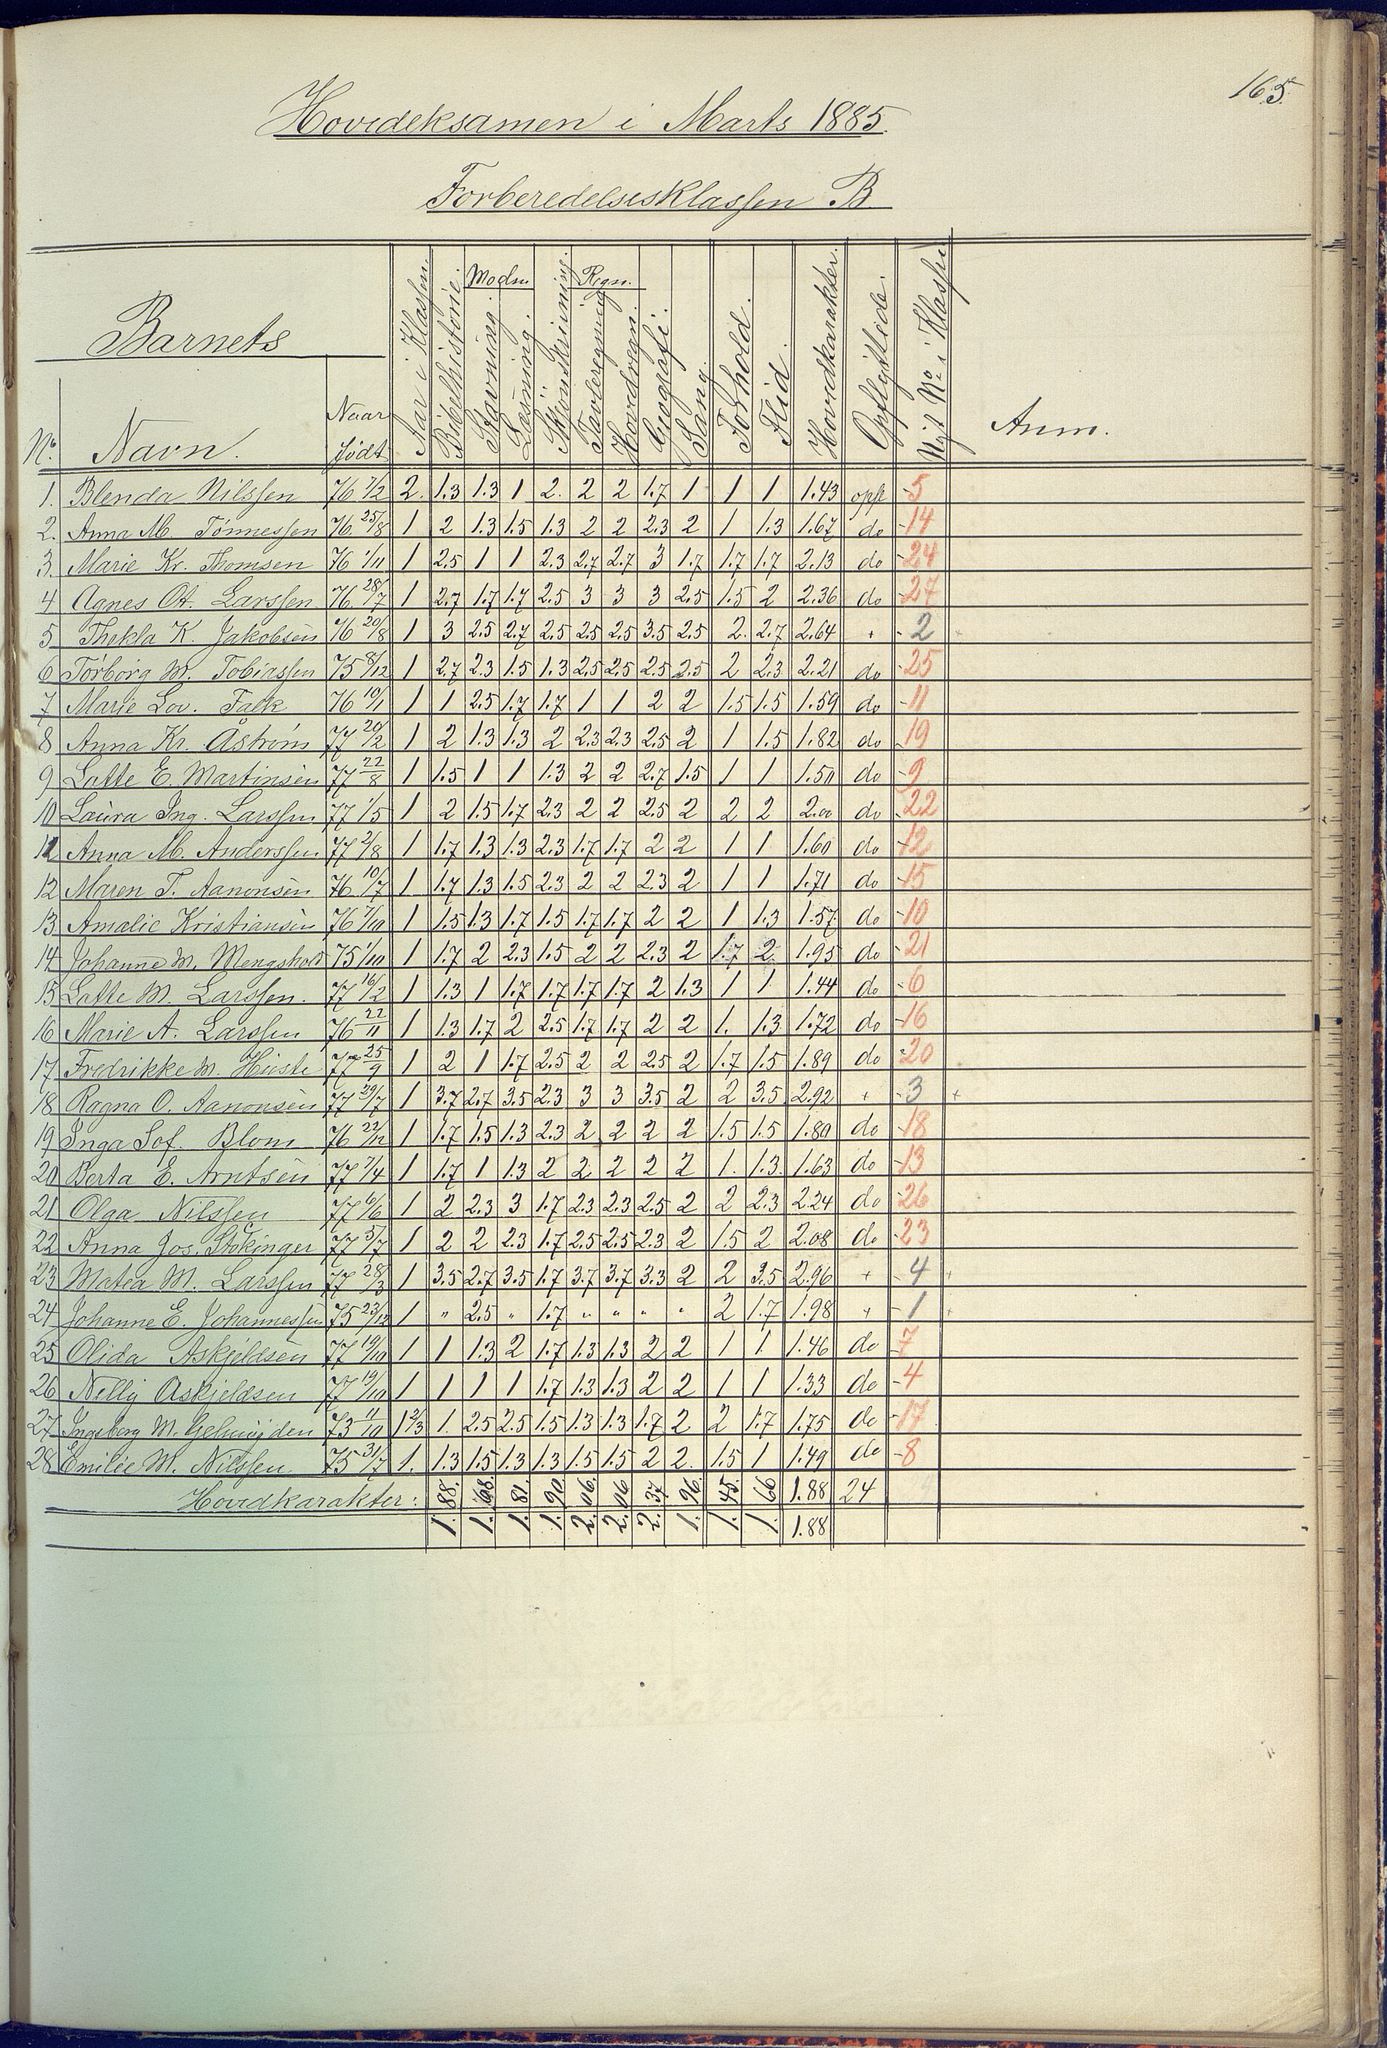 165.
Hovedeksamen i Marts 1885.
Forberedelsesklassen B.
Barnets
No. Navn. Naar født Aar i Klassen. Bibelhistorie. Modm. Stavning. Læsning. Skjönskrivning. Regn. Tavleregning Hovedregn. Geografi. Sang. Forhold. Flid. Hovedkarakter. Opflyttede. Nyt No i Klassen Anm.
1. Blenda Nilssen 76 7/2 2. 1.3 1.3 1 2. 2 2 1.7 1 1 1 1.43 opfl -5
2. Anna M. Tönnessen 76. 25/8 1 2 1.3 1.5 1.3 2 2 2.3 2 1 1.3 1.67 do -14
3. Marie Kr. Thomsen 76 1/11 1 2.5 1 1 2.3 2.7 2.7 3 1.7 1.7 1.7 2.13 do -24
4 Agnes Ot. Larssen 76. 28/7 1 2.7 1.7 1.7 2.5 3 3 3 2.5 1.5 2 2.36 do -27
5 Thekla K. Jakobsen 76 20/8 1 3 2.5 2.7 2.5 2.5 2.5 3.5 2.5 2. 2.7 2.64 + -2 +
6 Torborg M. Tobiassen 75 8/12 1 2.7 2.3 1.5 1.3 2.5 2.5 2.5 2.5 2 2.3 2.21 do -25
7 Marie Lov. Falk 76 10/1 1 1 2.5 1.7 1.7 1 1 2 2 1.5 1.5 1.59 do -11
8 Anna Kr. Åström 77 20/2 1 2 1.3 1.3 2 2.3 2.3 2.5 2 1 1.5 1.82 do -19
9 Lotte E. Martinsen 77 22/8 1 1.5 1 1 1.3 2 2 2.7 1.5 1 1 1.50 do -9
10 Laura Ing. Larssen 77 1/5 1 2 1.5 1.7 2.3 2 2 2.5 2 2 2 2.00 do -22
11 Anna M. Anderssen 77 2/8 1 1.7 1.3 1.3 2.3 1.7 1.7 2 2 1 1 1.60 do -12
12 Maren T. Aanonsen 76 10/7 1 1.7 1.3 1.5 2.3 2 2 2.3 2 1 1 1.71 do -15
13 Amalie Kristiansen 76 7/10 1 1.5 1.3 1.7 1.5 1.7 1.7 2 2 1 1.3 1.57 do -10
14 Johanne M. Mengshold 75 1/10 1 1.7 2 2.3 1.5 2 2 2.3 2 1.7 2 1.95 do -21
15 Lotte M. Larssen. 77 16/2 1 1.3 1 1.7 1.7 1.7 1.7 2 1.3 1 1 1.44 do -6
16 Marie A. Larssen 76 22/11 1 1.3 1.7 2 2.5 1.7 1.7 2 2 1. 1.3 1.72 do -16
17 Fredrikke M. 77 25/9 1 2 1 1.7 2.5 2 2 2.5 2 1.7 1.5 1.89 do -20
18 Ragna O. Aanonsen 77 29/7 1 3.7 2.7 3.5 2.3 3 3 3.5 2 2 3.5 2.92 + -3 +
19 Inga Sof. Blom 76 22/12 1 1.7 1.5 1.3 2.3 2 2 2 2 1.5 1.5 1.80 do -18
20 Berta E. Arntsen 77 7/4 1 1.7 1 1.3 2 2 2 2 2 1. 1.3 1.63 do -13
21 Olga Nilssen 77 6/6 1 2 2.3 3 1.7 2.3 2.3 2.5 2 2 2.3 2.24 do -26
22 Anna Jos. Stökinger 77 5/7 1 2 2 2.3 1.7 2.5 2.5 2.3 2 1.5 2 2.08 do -23
23 Matea M. Larssen 77 28/3 1 3.5 2.7 3.5 1.7 3.7 3.7 3.3 2 2 3.5 2.96 + -4 +
24 Johanne E. Johannessen 75 23/12 1 " 2.5 " 1.7 " " " " 2 1.7 1.98 + -1 +
25 Olida Askjeldsen 77 19/10 1 1 1.3 2 1.7 1.3 1.3 2 2 1 1 1.46 do -7
26 Nelly Askjeldsen 77 19/10 1 1 1 1 1.7 1.3 1.3 2 2 1 1 1.33 do -4
27 Ingeborg M. 73 11/10 1 2/3 1. 2.5 2.5 1.5 1.3 1.3 1.7 2 2 1.7 1.75 do -17
28 Emilie M. Nilssen 75 31/7 1. 1.3 1.5 1.3 1.3 1.5 1.5 2 2. 1.5 1 1.49 do -8
Hovedkarakter: 1.88. 1.68. 1.81. 1.90 2.06. 2.06 2.37 1.96. 1.45. 1.66 1.88 24
1.88